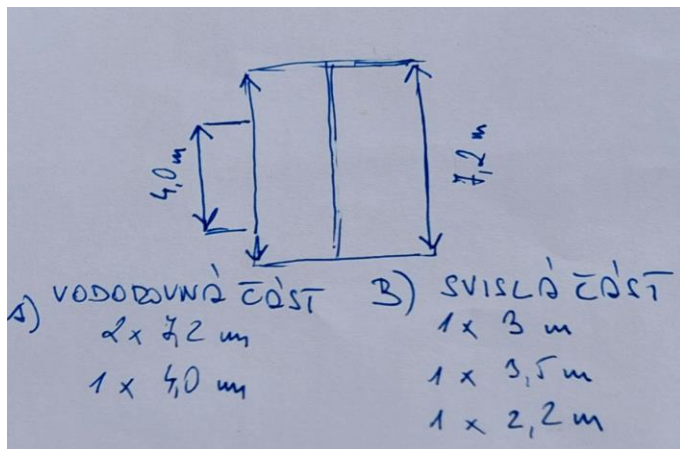 4,0 m
7,2 m
A) VODOROVNÁ ČÁST
2 x 7,2 m
1 x 4,0 m
B) SVISLÁ ČÁST
1 x 3 m
1 x 3,5 m
1 x 2,2 m